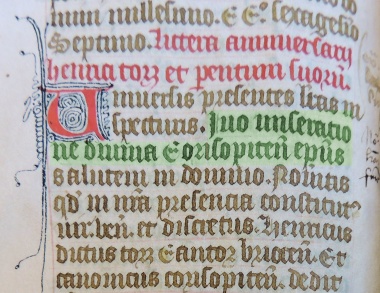 num millesimo. CC°. sexagesio
Septimo. Littera anniuersary
henrici torz et parentum suorum.
Uniuersis presentes litteras in
specturis. Iuo miseratio
ne diuina Corisopiten epus
salutem in domino. Noueritis
qd in nra presencia constitut
et discretus. Henricus
dictus torz Cantor
canonicus corisopiten. dedit